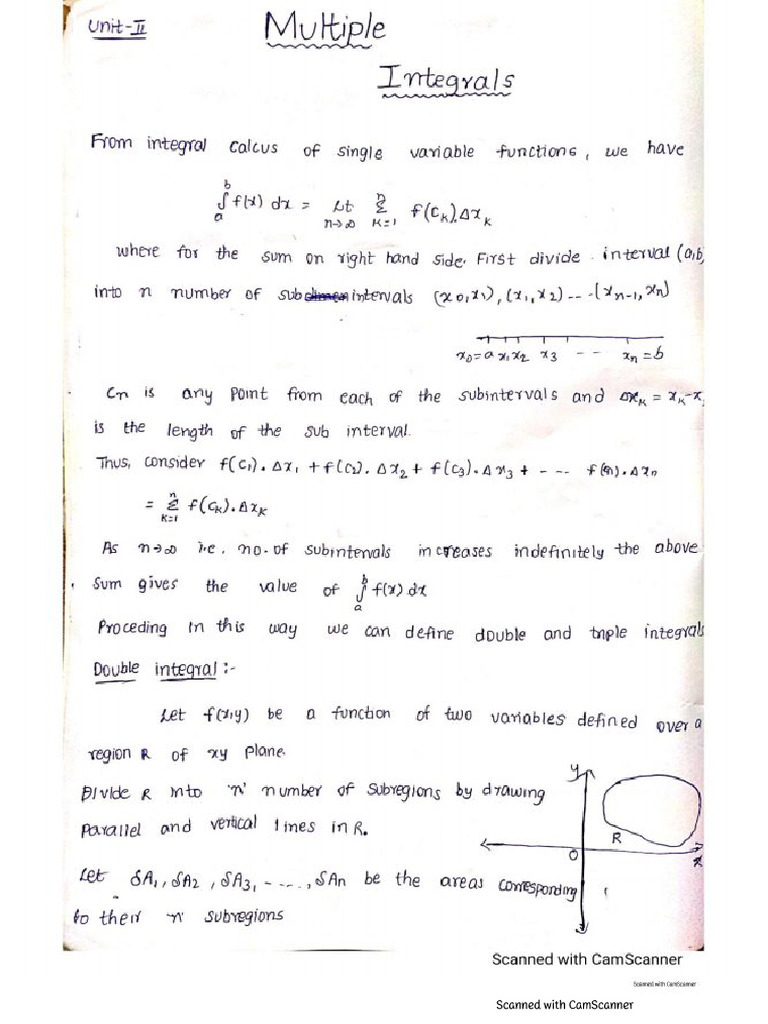 Unit-II
Multiple
Integrals
From integral calcus of single variable functions, we have
∫ₐᵇ f(x) dx = Lt n→∞ Σ K=1 n f(cₖ).Δxₖ
where for the sum on right hand side. First divide interval (a,b)
into n number of subintervals (x0,x1), (x1,x2) -- -(xn-1, xn)
x0=a x1 x2 x3 - - xn=b
Cn is any point from each of the subintervals and Δxₖ = xₖ-x
is the length of the sub interval.
Thus, consider f(c1).Δx1 + f(c2).Δx2 + f(c3).Δx3 + - -- f(cn).Δxn
= Σ K=1 n f(cₖ).Δxₖ
As n→∞ i.e. no.of subintervals increases indefinitely the above
Sum gives the value of ∫ₐᵇ f(x) dx
Proceding in this way we can define double and triple integrals
Double integral:-
Let f(x,y) be a function of two variables defined over a
region R of xy plane.
Divide R into 'n' number of subregions by drawing
Parallel and vertical lines in R.
y
R
O
x
Let δA1, δA2, δA3, - ---, δAn be the areas corresponding
to their 'n' subregions
Scanned with CamScanner
Scanned with CamScanner
Scanned with CamScanner